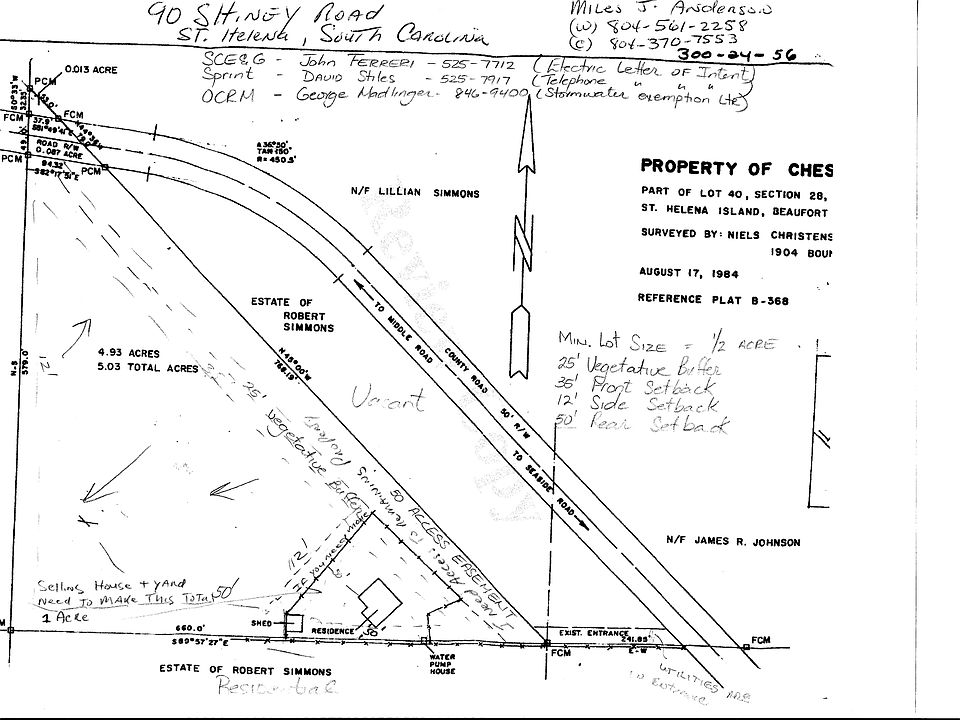 90 SHINEY ROAD
ST. Helena, South Carolina
Miles J. Anderson
(W) 804-561-2258
(C) 804-370-7553
300-24-56
SCE&G - John FERRERI - 525-7712 (Electric Letter of Intent)
Sprint - David Stiles - 525-7917 (Telephone " " ")
OCRM - George Madlinger - 846-9400 (Stormwater exemption Ltr)
0.013 ACRE
PCM
FCM
FCM
37.9'
S81°49'41"E
ROAD R/W
0.087 ACRE
PCM
94.32'
S82°17'51"E
PCM
Δ 36°50'
TAN 150'
R= 450.5'
N/F LILLIAN SIMMONS
PROPERTY OF CHES
PART OF LOT 40, SECTION 28,
ST. HELENA ISLAND, BEAUFORT
SURVEYED BY: NIELS CHRISTENS
1904 BOUN
AUGUST 17, 1984
REFERENCE PLAT B-368
N
ESTATE OF
ROBERT
SIMMONS
TO MIDDLE ROAD
COUNTY ROAD 50' R/W
TO SEASIDE ROAD
MIN. LOT SIZE = 1/2 ACRE
25' Vegetative Buffer
35' Front Setback
12' Side Setback
50' Rear Setback
4.93 ACRES
5.03 TOTAL ACRES
N-S
579.0'
12'
N 45°00'W
768.19'
Vacant
25' Vegetative Buffer
50 ACCESS EASEMENT
I need Access to remaining property
N/F JAMES R. JOHNSON
12'
IF YOU NEED MORE
50'
Selling House + YARD
Need To MAKE This Total
1 Acre
50'
SHED
RESIDENCE
50'
660.0'
S89°57'27"E
WATER
PUMP
HOUSE
EXIST. ENTRANCE
241.85'
E-W
FCM
FCM
ESTATE OF ROBERT SIMMONS
Residential
UTILITIES ARE
in Entrance